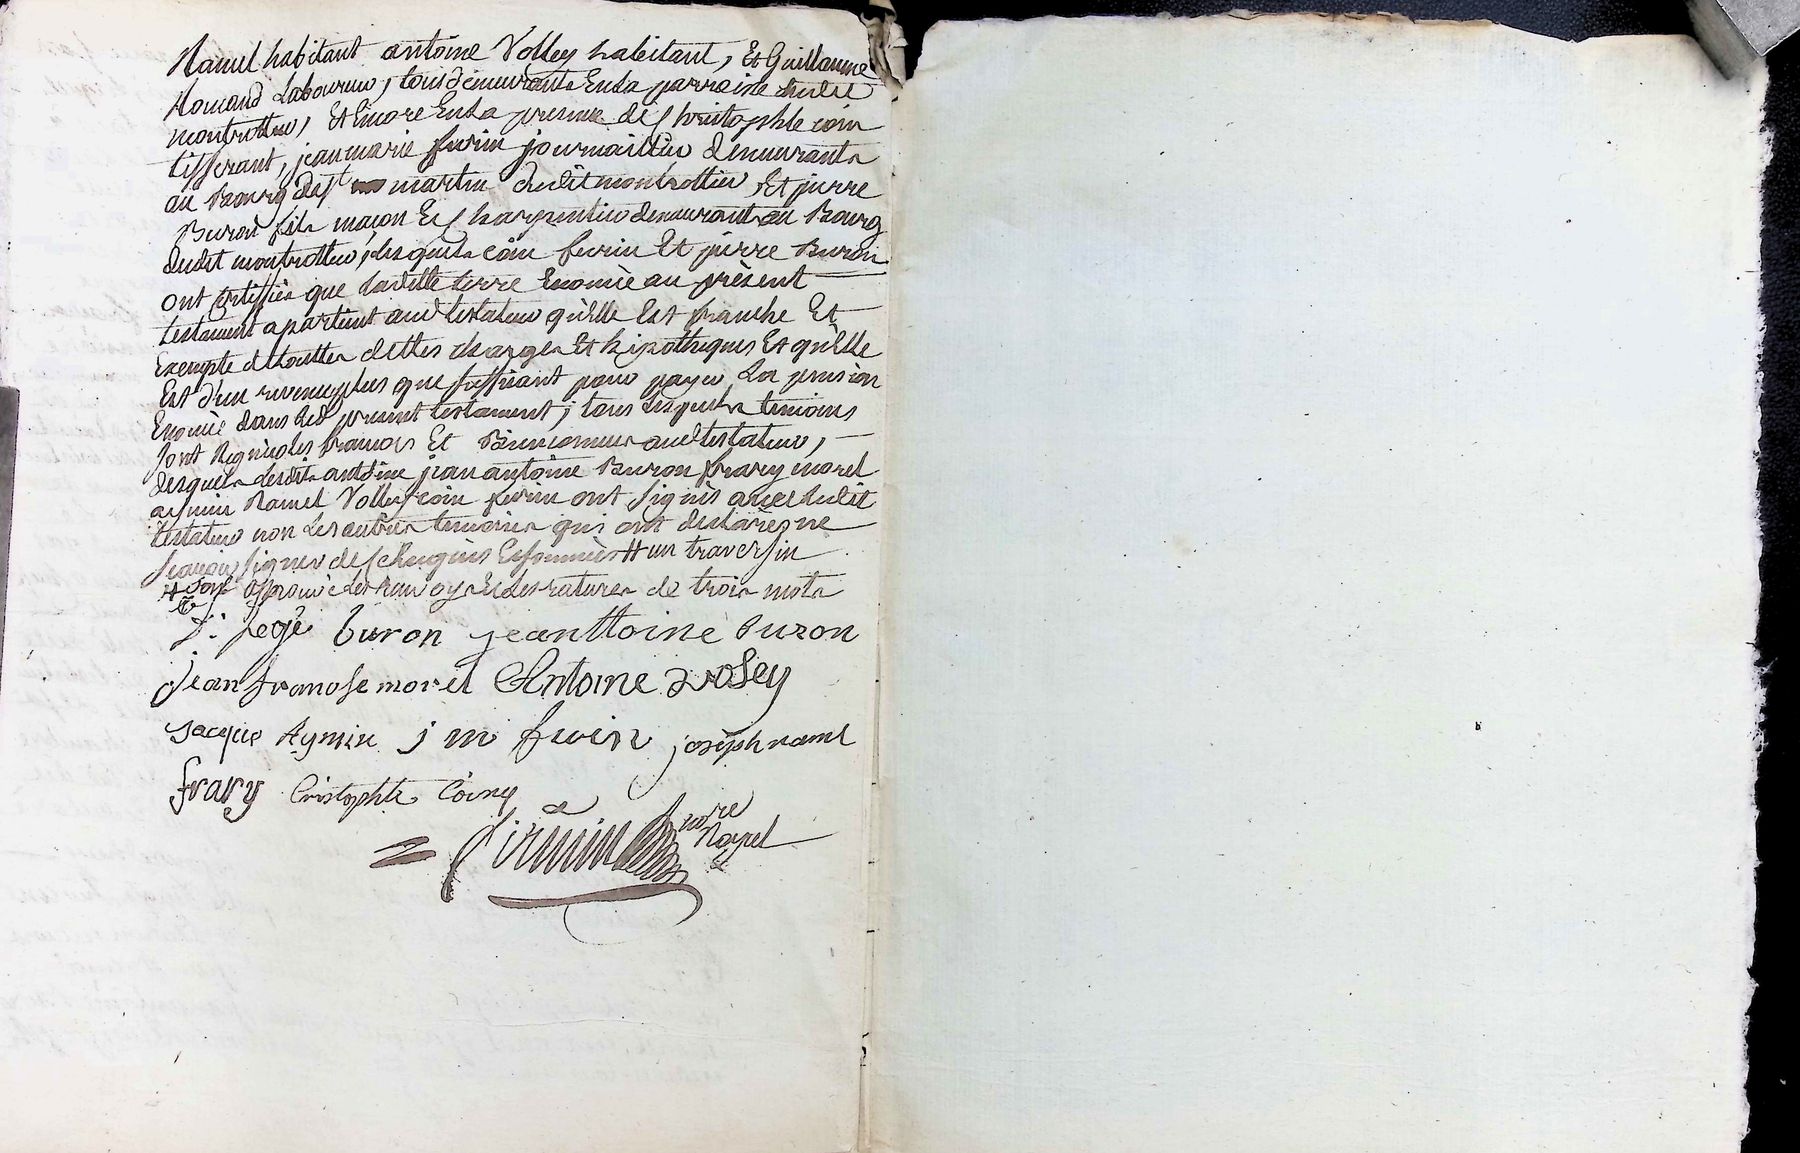 Ramel habitant antoine Volley habitant, Et Guillaume
Romand Laboureur, tous demeurants En La parroisse dudit
montrottier, Et Encore En La presence de Christophle coin
tisserant, jean marie furin journaillier demeurants
au Bourg de St martin dudit montrottier Et pierre
Buron fils maçon Et Charpentier demeurant au Bourg
dudit montrottier, lesquels coin furin Et pierre Buron
ont Certiffiés que laditte terre Enoncée au présent
testament apartient aud testateur qu'elle Est franche Et
Exempte de touttes dettes charges Et hipotheques Et qu'elle
Est d'un revenu plus que suffisant pour payer La pension
Enoncée dans led present testament; tous Lesquels temoins
sont Regnicoles francois Et Bien connus aud testateur,
desquels lesdits antoine jean antoine Buron frary morel
aymin Ramel Volley coin furin ont signés avec Ledit
testateur non Les autres temoins qui ont declarés ne
scavoir signer de Ce Enquis Et sommés # un traversin
# soit approuvé Les Renvoys Et Les ratures de trois mots
buron jeanttoine buron
jean franose morel Antoine volley
Jacque Aymin j m furin joseph ramel
frary Cristophle Coing
nore Royal